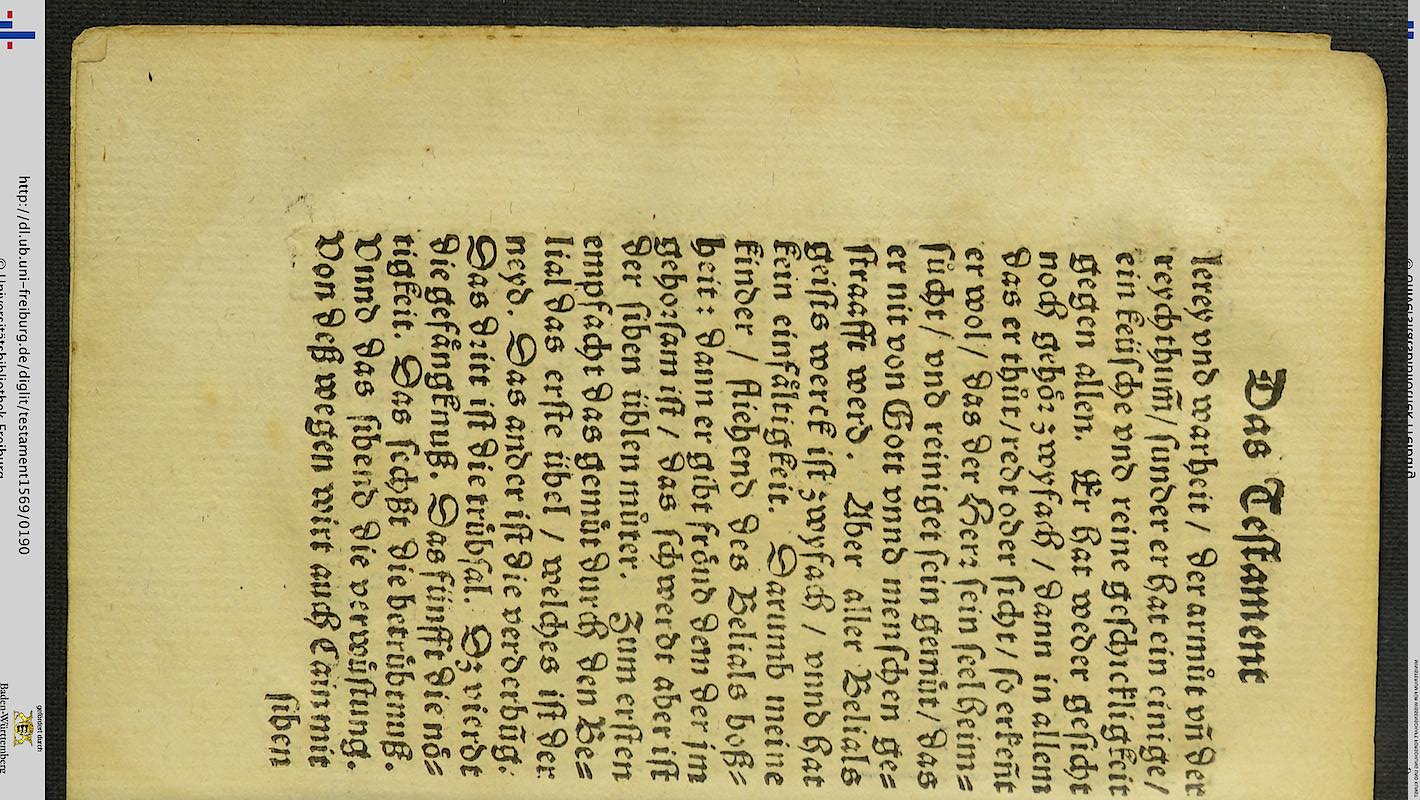 Das Testament
lerey vnd warheit / der armůt vñ der
reychthum̃ / sunder er hat ein einige /
ein keüsche vnd reine geschickligkeit
gegen allen. Er hat weder gesicht
noch gehör zwyfach / dann in allem
das er thůt / redt oder sicht / so erkeñt
er wol / das der Herr sein seel heim=
sůcht / vnd reiniget sein gemüt / das
er nit von Gott vnnd menschen ge=
straafft werd. Aber aller Belials
geists werck ist zwyfach / vnnd hat
kein einfältigkeit. Darumb meine
kinder / fliehend des Belials boß=
heit: dann er gibt fröud dem der jm
gehorsam ist / das schwerdt aber ist
der siben üblen můter. Zum ersten
empfacht das gemüt durch den Be=
lial das erste übel / welches ist der
neyd. Das ander ist die verderbũg.
Das dritt ist die trübsal. Dz vierdt
die gefängknuß. Das fünfft die nö=
tigkeit. Das sichßt die betrübnuß.
Vnnd das sibend die verwüstung.
Von deß wegen wirt auch Cain mit
siben
http://dl.ub.uni-freiburg.de/diglit/testament1569/0190
© Universitätsbibliothek Freiburg
gefördert durch
Baden-Württemberg